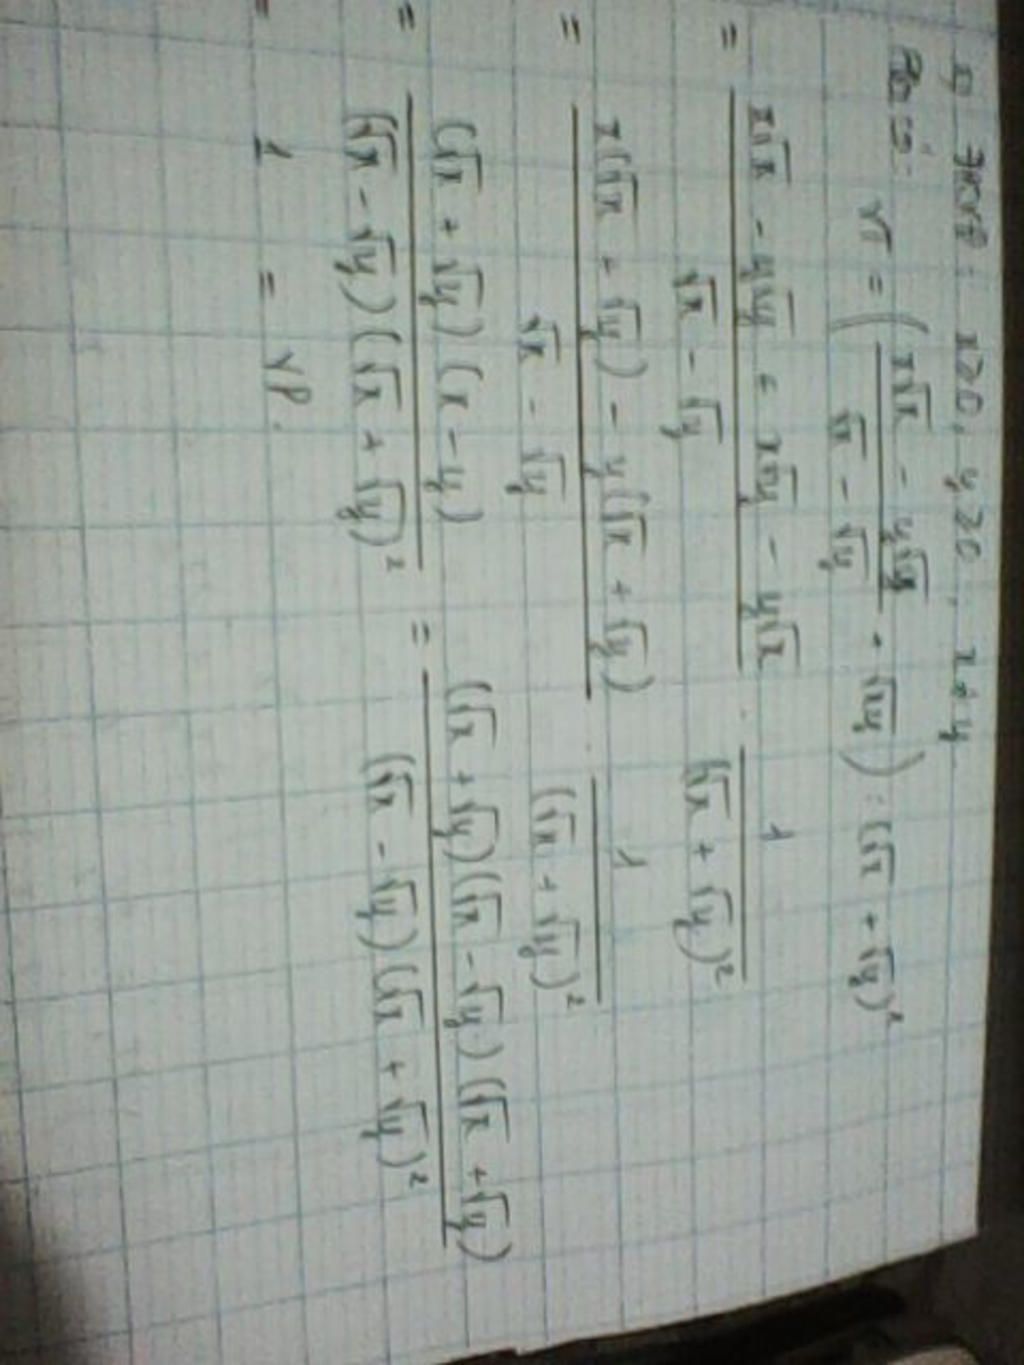 ĐKXĐ: x≥0, y≥0, x≠y
VT = (x√x - y√y / √x - √y + √xy) : (√x + √y)²
= x√x - y√y + x√y - y√x / √x - √y · 1 / (√x + √y)²
= x(√x + √y) - y(√x + √y) / √x - √y · 1 / (√x + √y)²
= (√x + √y)(x - y) / (√x - √y)(√x + √y)² = (√x + √y)(√x - √y)(√x + √y) / (√x - √y)(√x + √y)²
= 1 = VP.